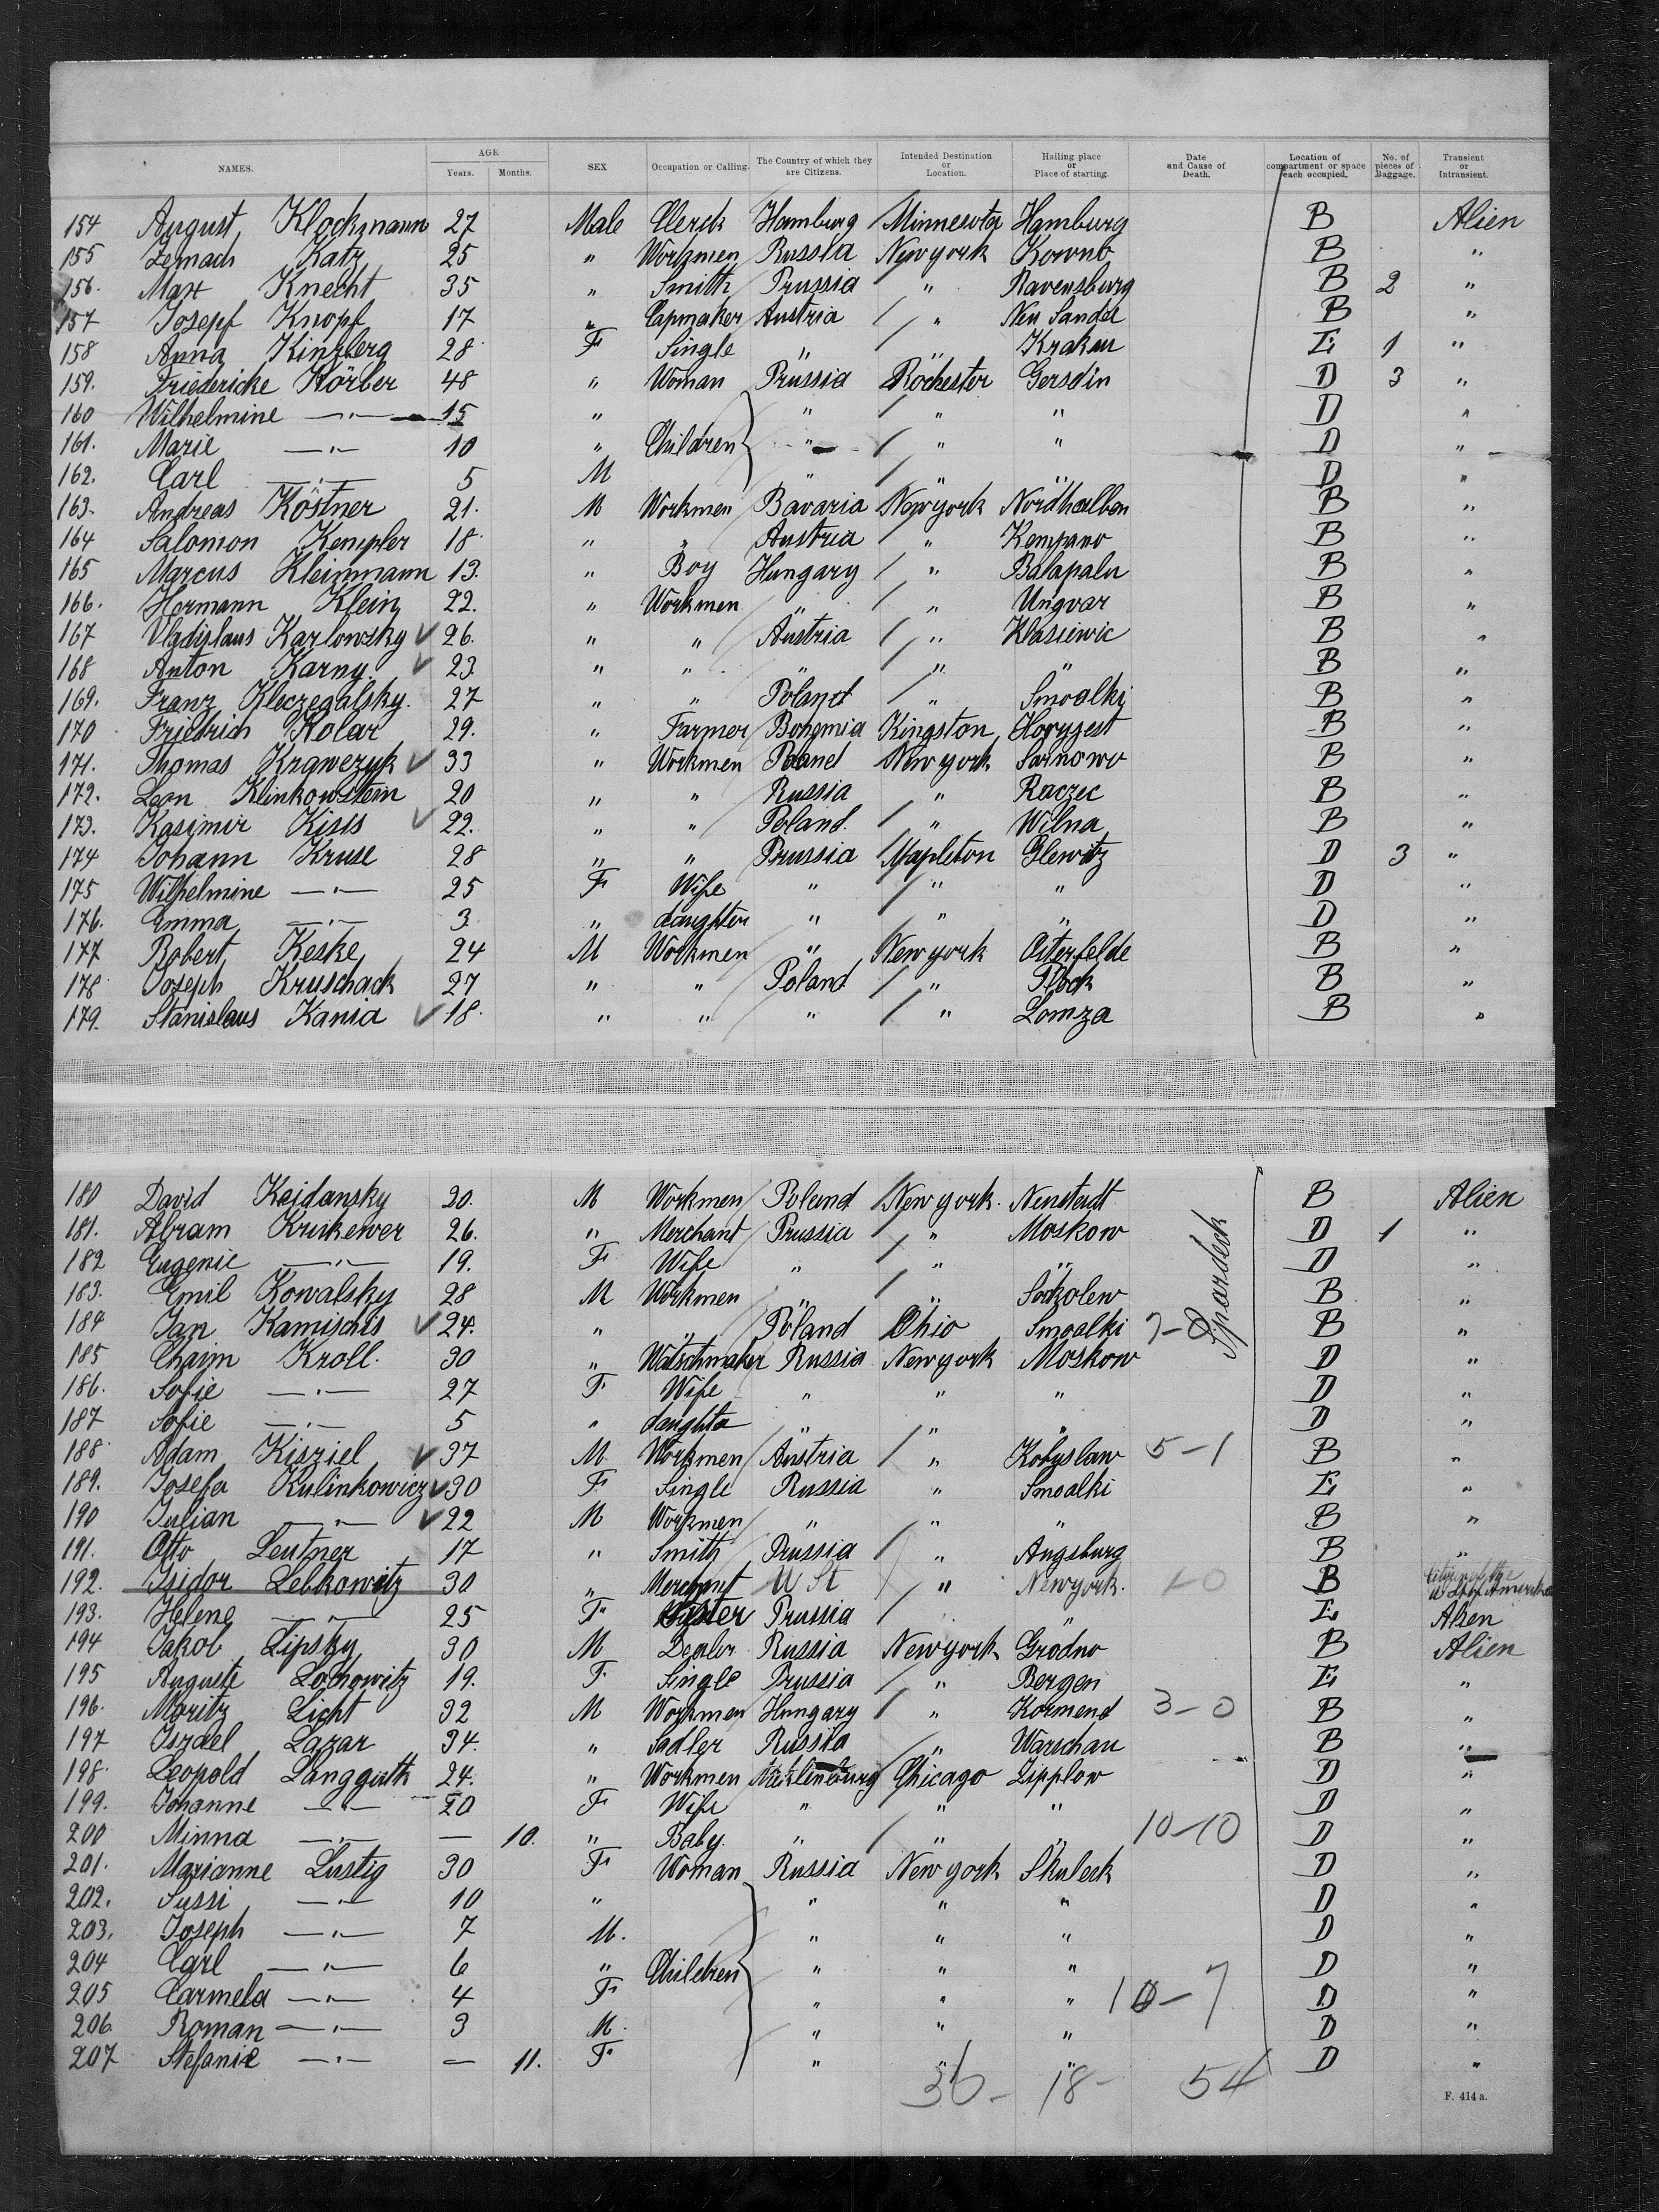 NAMES. AGE Years. Months. SEX Occupation or Calling. The Country of which they are Citizens. Intended Destination or Location. Hailing place or Place of starting. Date and Cause of Death. Location of compartment or space each occupied. No. of pieces of Baggage. Transient or Intransient.
154 August Klockmann 27 Male Clerck Hamburg Minnesota Hamburg B Alien
155 Zemach Katz 25 " Workmen Russia Newyork Kowno B "
156. Max Knecht 35 " Smith Prussia " Ravensburg B 2 "
157 Josepf Knopf 17 " Capmaker Austria " Neu Sandec B "
158 Anna Kinzberg 28 F Single " " Krakau E 1 "
159. Friedericke Körber 48 " Woman Prussia Rochester Gersdin D 3 "
160 Wilhelmine —"— 15 " " " " D "
161. Marie —"— 10 " Children " " " D "
162. Carl —"— 5 M " " " D "
163. Andreas Köstner 21. M Workmen Bavaria Newyork Nordhalben B "
164 Salomon Kempler 18 " " Austria " Kempano B "
165 Marcus Kleinmann 13. " Boy Hungary " Balapalu B "
166. Hermann Klein 22. " Workmen " " Ungvar B "
167 Vladislaus Karlowsky 26. " " Austria " Klasiewic B "
168 Anton Karny 23. " " " " " B "
169. Franz Kleczegalsky. 27 " " Poland " Smoalki B "
170 Friedrich Kolar 29. " Farmer Bohemia Kingston B "
171. Thomas Krawczyk 33 " Workmen Poland Newyork Sarnowo B "
172. Leon Klinkowstein 20 " " Russia " Raczec B "
173. Kasimir Kisis 22. " " Poland. " Wilna B "
174 Johann Kruse 28 " " Prussia Mapleton Glewitz D 3 "
175 Wilhelmine —"— 25 F Wife " " " D "
176. Emma —"— 3. " daughter " " " D "
177 Robert Keske 24 M Workmen " Newyork Osterfelde B "
178 Joseph Kruschack 27 " " Poland " Plock B "
179. Stanislaus Kania 18. " " " " Lomza B "
180 David Keidansky 20. M Workmen Poland Newyork. Neustadt B Alien
181. Abram Krukewer 26. " Merchant Prussia " Moskow D 1 "
182 Eugenie —"— 19. F Wife " " " D "
183. Emil Kowalsky 28 M Workmen " " B "
184 Jan Kamischis 24. " " Poland Ohio Smoalki 7-0 B "
Spardeck
185 Chaim Kroll. 30 " Watschmaker Russia Newyork Moskow D "
186. Sofie —"— 27 F Wife " " " D "
187 Sofie —"— 5 " daughter " " " D "
188 Adam Kisziel 37 M. Workmen Austria " Kobyslaw 5-1 B "
189. Josefa Kulinkowicz 30 F Single Russia " Smoalki E "
190 Julian —"— 22 M Workmen " " " B "
191. Otto Leutner 17 " Smith Prussia " Augsburg B "
192. Isidor Lebkowitz 30 " Merchant U St " Newyork. 1-0 B Citizen of the U St of Amerika
193. Helene —"— 25 F Prussia " " E Alien
194 Jakob Lipsky 30 M Dealer Russia Newyork Grodno B Alien
195 Auguste Lothowitz 19. F Single Prussia " Bergen E "
196. Moritz Licht 32 M Workmen Hungary " Kormend 3-0 B "
197 Israel Lazar 34. " Sadler Russia " Warschau B "
198. Leopold Langguth 24. " Workmen Meklenburg Chicago Zipplow D "
199. Johanne —"— 20 F Wife " " " D "
200 Minna —"— — 10. " Baby. " " " 10-10 D "
201. Marianne Lustig 30 F Woman Russia Newyork Skuleck D "
202. Sussi —"— 10 " " " " D "
203. Joseph —"— 7 M. " " " D "
204 Carl —"— 6 " Children " " " D "
205 Carmela —"— 4 F " " " 10-7 D "
206. Roman —"— 3 M. " " " D "
207 Stefanie —"— — 11. F " " " D "
36- 18- 54
F. 414 a.